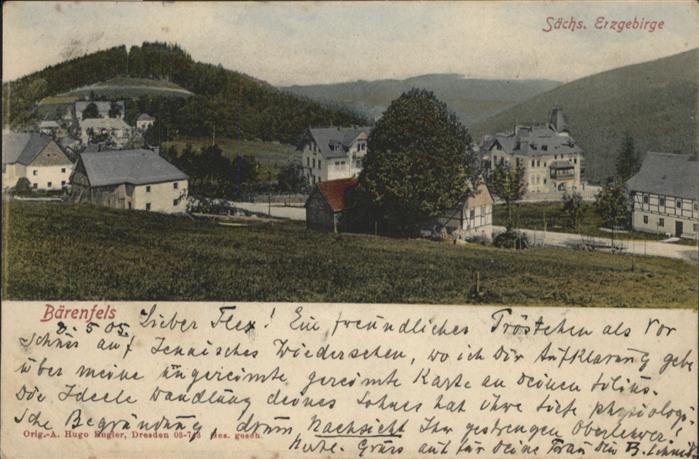 Sächs. Erzgebirge
Bärenfels
3. 5 05. Lieber Flex! Ein freundliches Tröstchen als Vor
schuss auf Jenaisches Wiedersehen, wo ich Dir Aufklärung gebe
über meine ungereimte gereimte Karte an deinen filius.
Die Ideele Wandlung deines Sohnes hat ihre tiefe physiologi-
sche Begründung, drum Nachsicht Ihr gestrengen Oberlehrer!
Grüss auf für Deine Frau Dein B. Schmidt
Orig.-A. Hugo Engler, Dresden 03-743 Ges. gesch.